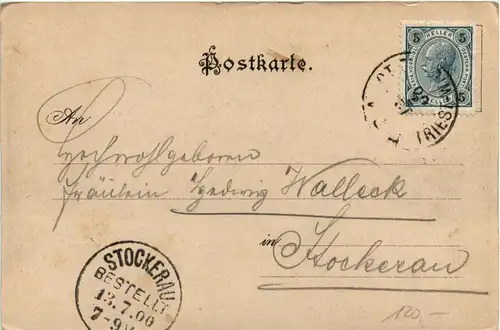 5 HELLER 5
Postkarte.
TRIEST
An
Hochwohlgeboren
Fräulein Hedwig Walleck
in
Stockerau
STOCKERAU
BESTELLT
13.7.00
120.-